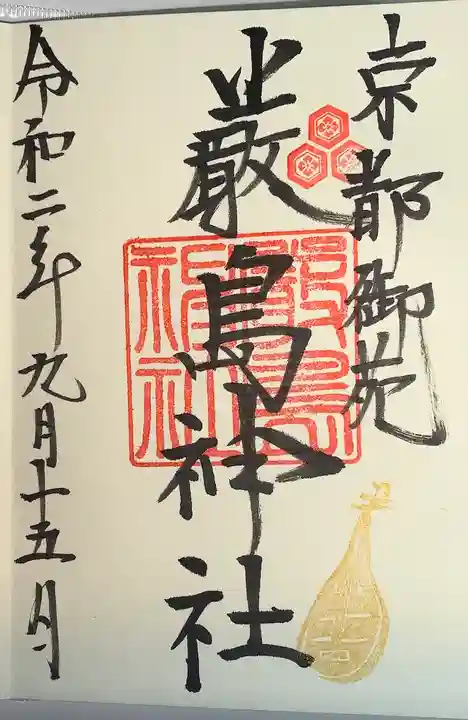 京都御苑
嚴島神社
嚴島神社
令和二年九月十五日